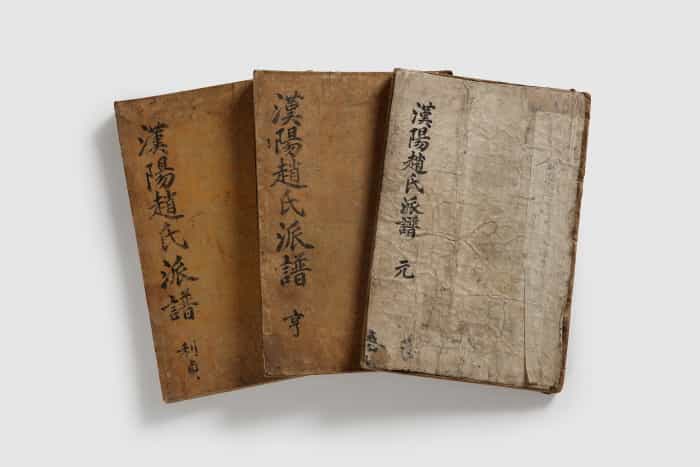 漢陽趙氏派譜 元
漢陽趙氏派譜 亨
漢陽趙氏派譜 利貞